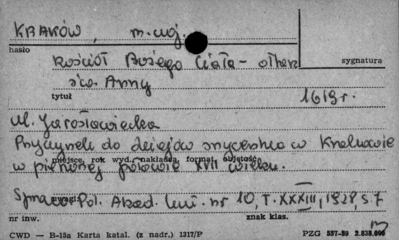 KRAKÓW, m. woj.
hasło
Kościół Bożego Ciała - ołtarz
sygnatura
św. Anny
tytuł
1619 r.
ul. Jarosławiecka
Przyczynek do dziejów snycerstwa w Krakowie
miejsce, rok wyd., nakładca, format, objętość
w pierwszej połowie XVII wieku.
Pol. Akad. Um. nr 10, T. XXXIII, 1928, s. 7
nr inw.
znak klas.
CWD — B-15a Karta katal. (z nadr.) 1317/P
PZG